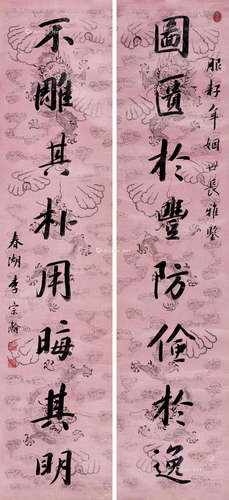 服籽年姻世長雅鑒
圖匱於豐防儉於逸
不雕其朴用晦其明
春湖李宗瀚